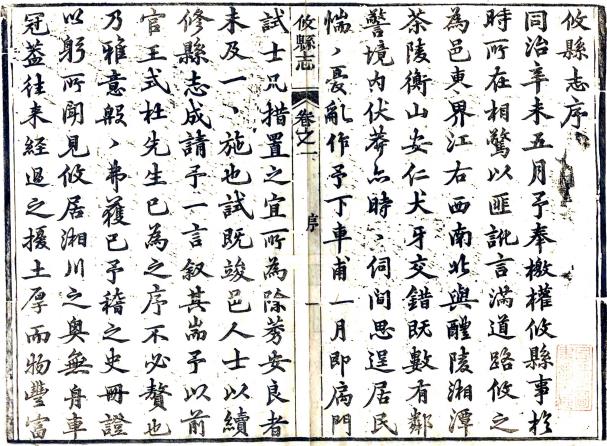 攸縣志序
同治辛未五月予奉檄權攸縣事於
時所在相驚以匪訛言滿道路攸之
為邑東界江右西南北與醴陵湘潭
茶陵衡山安仁犬牙交錯既數有鄰
警境內伏莽亦時〻伺間思逞居民
惴〻憂亂作予下車甫一月即扃門
攸縣志
卷之一
序
一
試士凡措置之宜所為除莠安良者
未及一〻施也試既竣邑人士以續
修縣志成請予一言叙其耑予以前
官王式杜先生已為之序不必贅也
乃雅意殷〻弗獲已予稽之史冊證
以躬所聞見攸居湘川之奥無舟車
冠蓋往來經過之擾土厚而物豐富